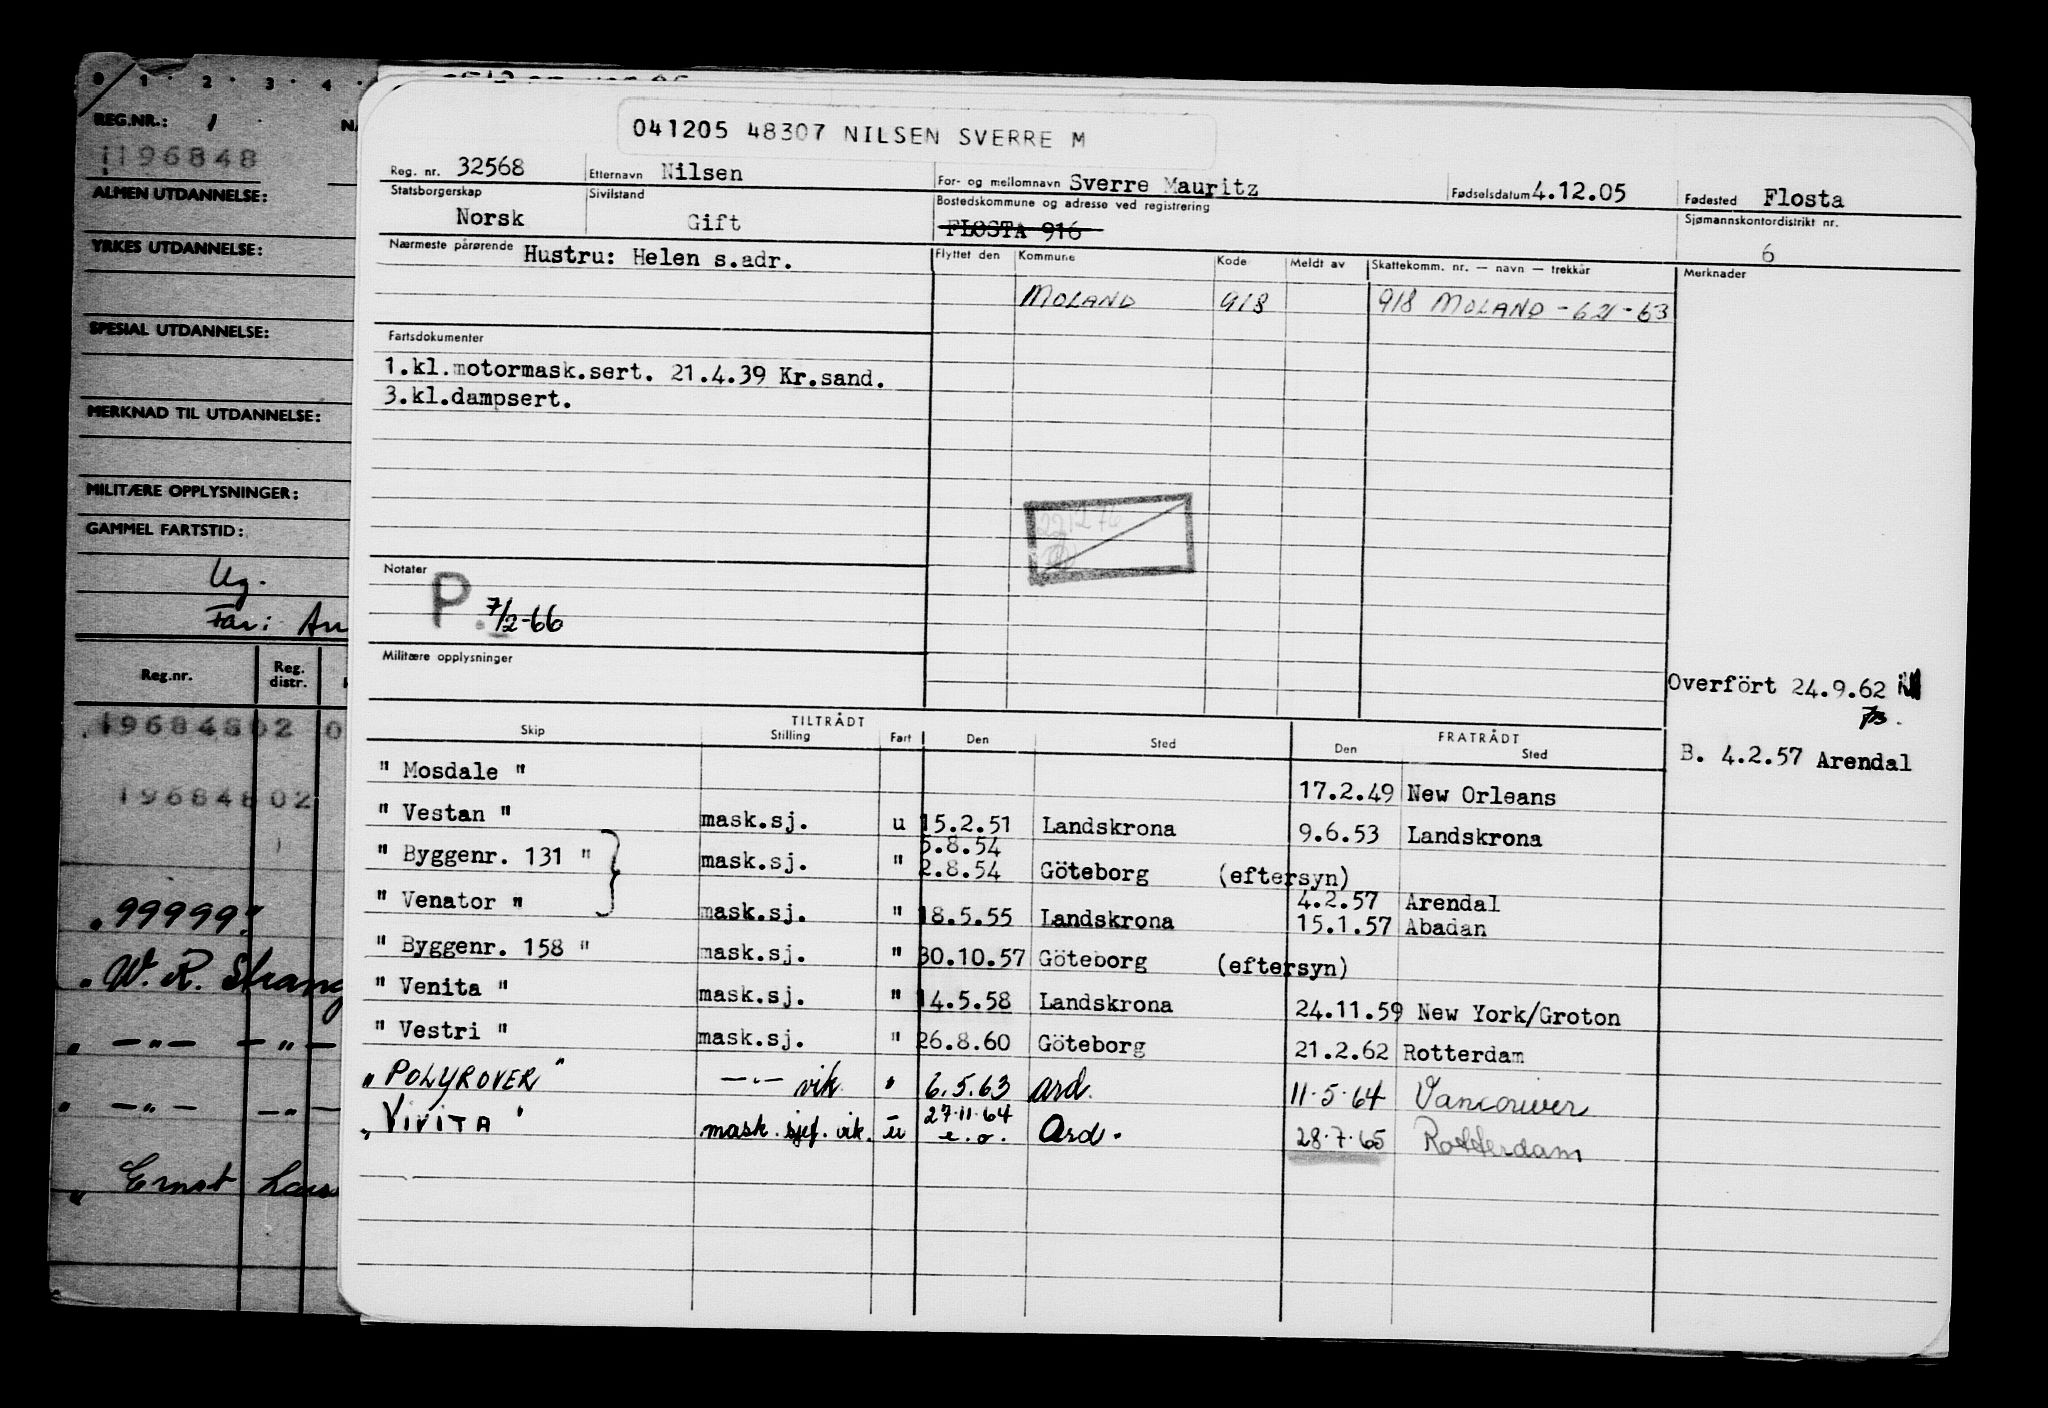 0 1 2 3 4
REG.NR.: 1
1196848
ALMEN UTDANNELSE:
YRKES UTDANNELSE:
SPESIAL UTDANNELSE:
MERKNAD TIL UTDANNELSE:
MILITÆRE OPPLYSNINGER:
GAMMEL FARTSTID:
Ug.
Far: An
Reg.nr. Reg. distr.
19684802 0
19684802
99999
W. R. Strang
" —"— —"—
" —"— —"—
" Ernst Lars
041205 48307 NILSEN SVERRE M
Reg. nr. 32568 Etternavn Nilsen For- og mellomnavn Sverre Mauritz Fødselsdatum 4.12.05 Fødested Flosta
Statsborgerskap Norsk Sivilstand Gift Bostedskommune og adresse ved registrering FLOSTA 916 Sjømannskontordistrikt nr. 6
Nærmeste pårørende Hustru: Helen s.adr.
Flyttet den Kommune Kode Meldt av Skattekomm. nr. — navn — trekkår Merknader
MOLAND 918 918 MOLAND - 62 - 63
Fartsdokumenter
1.kl.motormask.sert. 21.4.39 Kr.sand.
3.kl.dampsert.
Notater
P. 7/2-66
Militære opplysninger
Overført 24.9.62
B. 4.2.57 Arendal
TILTRÅDT FRATRÅDT
Skip Stilling Fart Den Sted Den Sted
" Mosdale " 17.2.49 New Orleans
" Vestan " mask.sj. u 15.2.51 Landskrona 9.6.53 Landskrona
5.8.54
" Byggenr. 131 " mask.sj. " 2.8.54 Göteborg (eftersyn)
4.2.57 Arendal
" Venator " mask.sj. " 18.5.55 Landskrona 15.1.57 Abadan
" Byggenr. 158 " mask.sj. " 30.10.57 Göteborg (eftersyn)
" Venita " mask.sj. " 14.5.58 Landskrona 24.11.59 New York/Groton
" Vestri " mask.sj. " 26.8.60 Göteborg 21.2.62 Rotterdam
" POLYROVER " —"— vik " 6.5.63 Ard. 11.5.64 Vancouver
" VIVITA " mask. sjef. vik. u 27.11.64 e.o. Ard. 28.7.65 Rotterdam